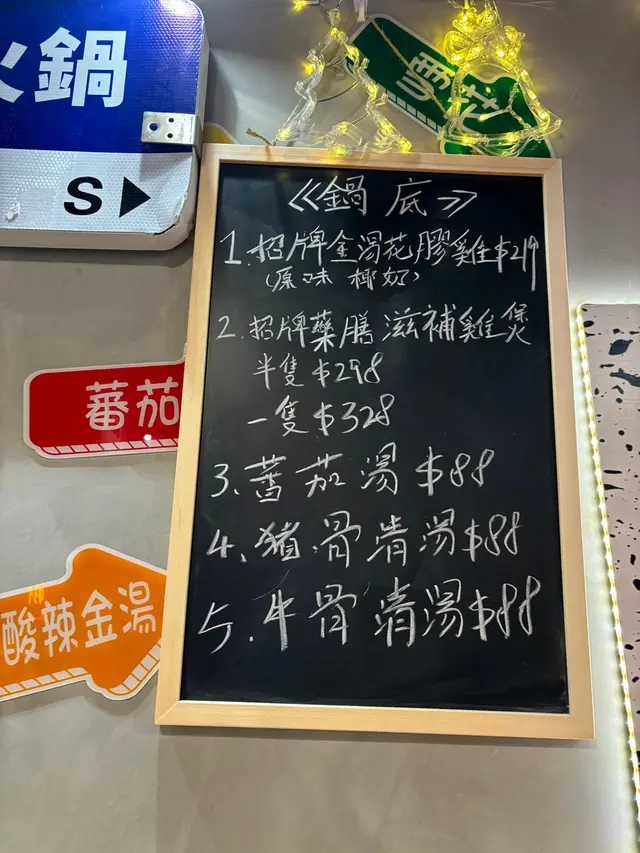 火鍋
S
《鍋底》
1. 招牌金湯花膠雞$219
(原味 椰奶)
2. 招牌藥膳滋補雞煲
半隻 $298
一隻 $328
3、蕃茄湯 $88
4、豬骨清湯$88
5、牛骨清湯$88
蕃茄
酸辣金湯